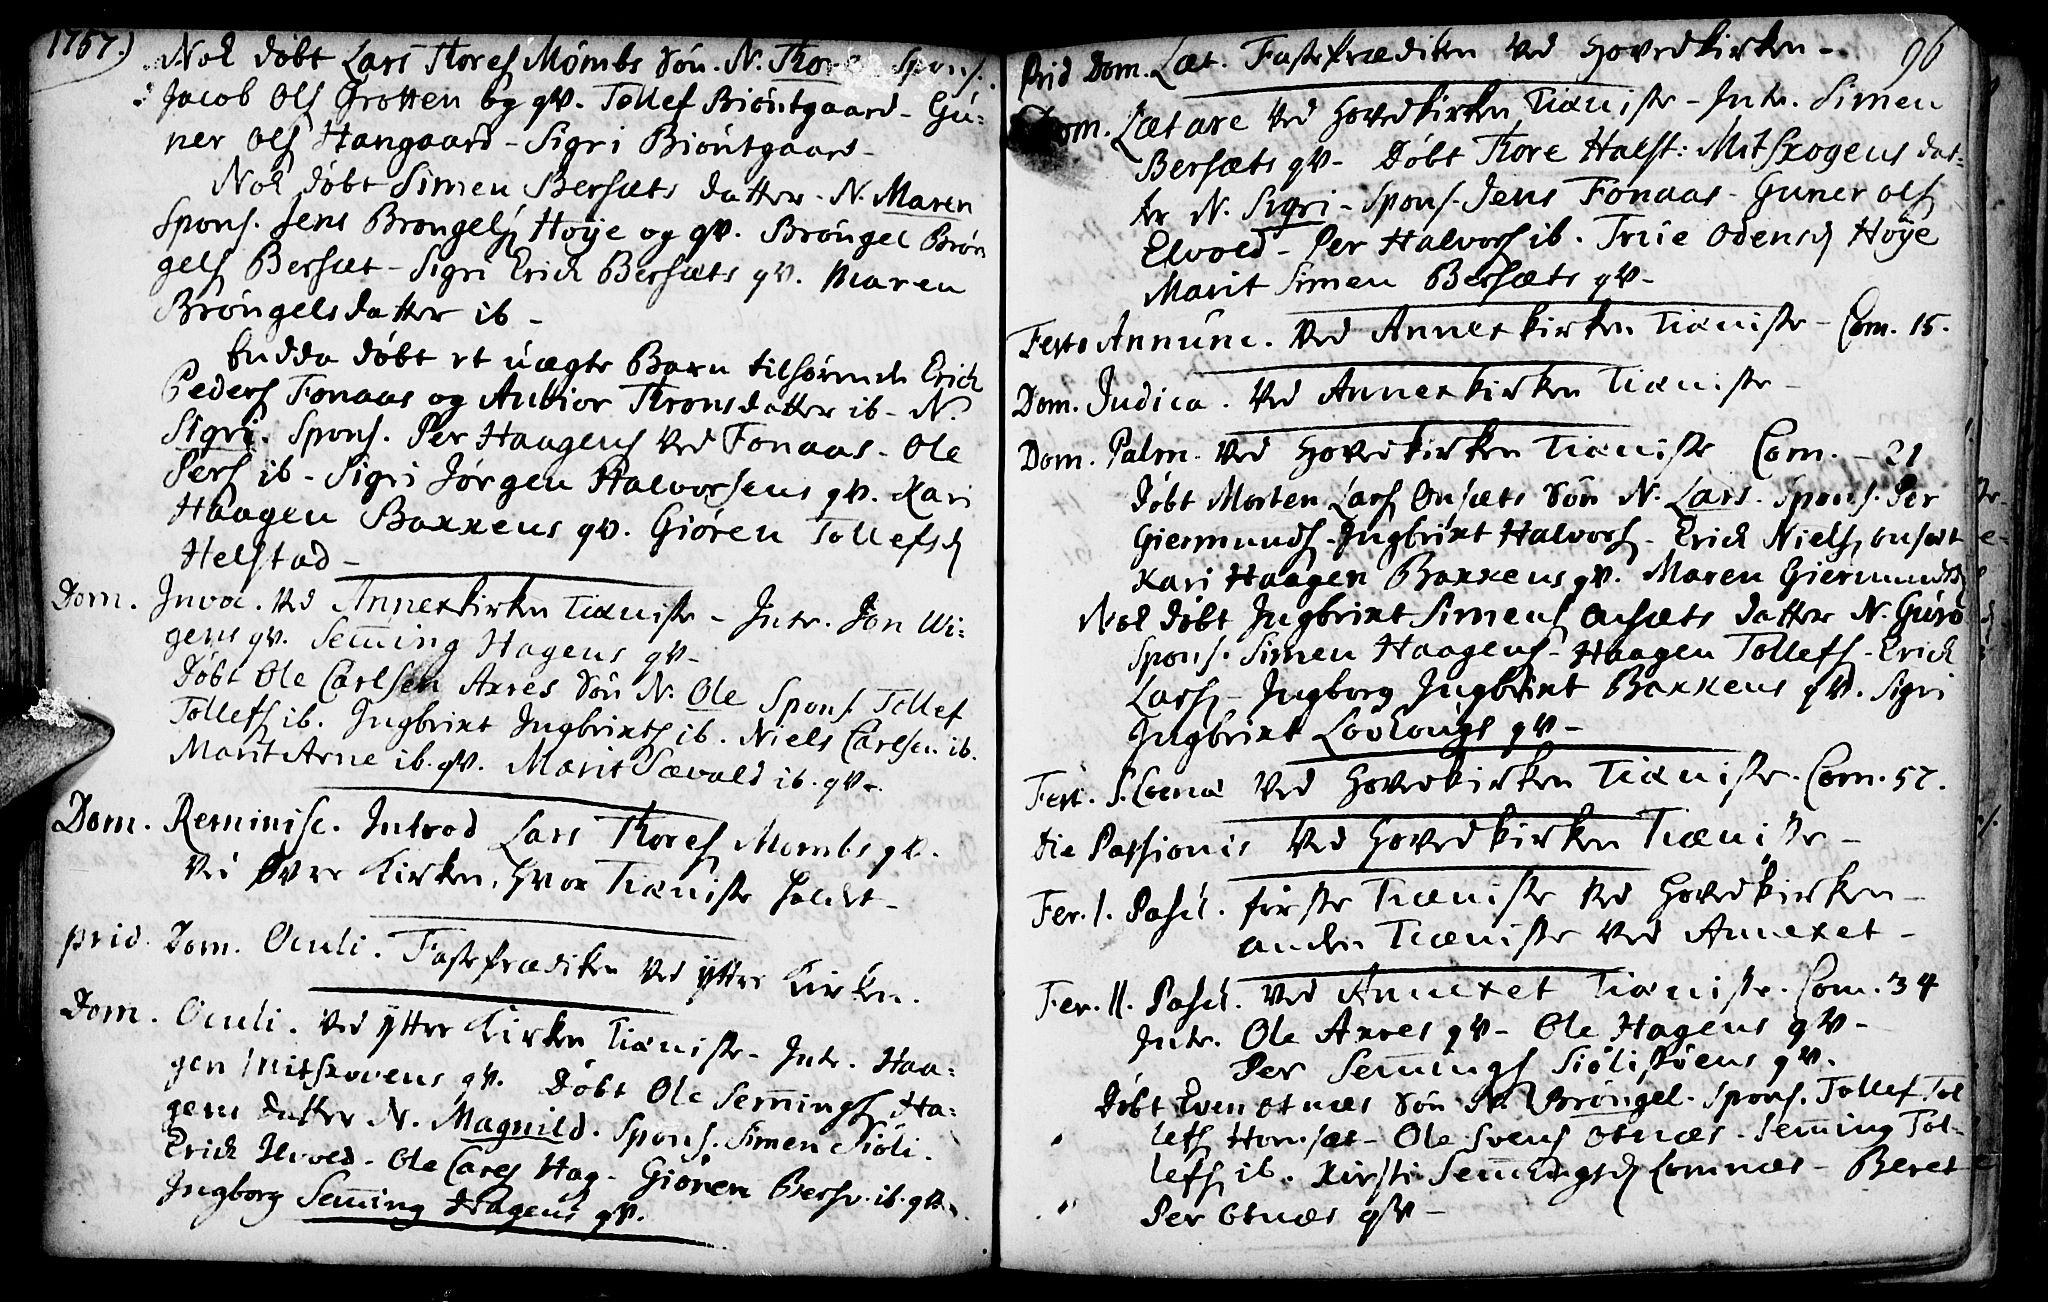 1757.)
Nok døbt Lars Thores Mømbs Søn. N. Thore Spons.
Jacob Ols Grotten og qv. Tollef Biöntgaard - Gu:
ner Ols Hangaard - Sigri Biöntgaard -
Nok døbt Simen Bersæts datter - N. Maren
Spons. Jens Brøngels Høÿe og qv. Brøngel Brøn
gels Bersæt - Sigri Erich Bersæts qv. Maren
Brøngelsdatter ib -
Endda døbt et uægte Barn tilhørende Erich
Peders Fonaas og Anbior Thronsdatter ib - N.
Sigri. Spons. Per Haagens ved Fonaas - Ole
Pers ib - Sigri Jørgen Halvorsens qv. Kari
Haagen Baxxens qv. Giøren Tollefsd
Helstad -
Dom. Invoc. ved Annexkirken Tieniste - Intr. Jon Wi:
gens qv. Semming Hagens qv -
Døbt Ole Carlsen Axres Søn N. Ole Spons Tollef
Tollefs ib. Ingbrixt Ingbrixts ib. Niels Carlsen ib.
Marit Arne ib. qv. Marit Sævald ib. qv -
Dom. Reminisc. Introd Lars Thores Mombs qv.
ved Øvre Kirken, hvor Tieniste holdt -
prid. Dom. Oculi. Fasteprædiken ved ÿttre Kirken.
Dom. Oculi. ved ÿttre Kirken Tieniste - Intr. Haa:
gen Mitskovens qv. Døbt Ole Semmings Ha:
gens datter N. Magnild. Spons. Simen Siöli.
Erich Elvold - Ole Cares Hag - Giören Berhv. ib. qv.
Ingborg Semming Hagens qv.
96
Prid Dom. Læt. Fasteprædiken ved Hovedkirken -
Dom. Lætare ved Hovedkirken Tieniste - Intr. Simen
Bersæts qv - Døbt Thore Halst: Mitskogens dat:
ter N. Sigri - Spons. Jens Fonaas - Guner Ols
Elvold - Per Halvors ib. Trüe Odensd Høÿe
Marit Simen Bersæts qv -
Festo Annunc. ved Annexkirken Tieniste - Com. 15.
Dom. Judica. ved Annexkirken Tieniste -
Dom. Palm. ved Hovedkirken Tieniste Com. - 21
døbt Morten Lars Onsæts Søn N. Lars. Spons. Per
Giermunds - Ingbrixt Halvors - Erich Niels, Onsæt
Kari Haagen Baxxens qv. Maren Giermundsd
Nok døbt Ingbrixt Simens Onsæts datter N. Guro
Spons. Simen Haagens - Haagen Tollefs - Erich
Lars - Ingborg Ingbrixt Baxxens qv. Sigri
Ingbrixt Lovlongs qv -
Fest. S. Coenæ ved Hovedkirken Tieniste. Com. 57.
die Passionis ved Hovedkirken Tieniste -
Fer. 1. Pasch. første Tieniste ved Hovedkirken -
anden Tieniste ved Annexet -
Fer. II. Pasch. ved Annexet Tieniste. Com. 34
Intr. Ole Axres qv - Ole Hagens qv -
Per Semmings Siölistöens qv.
Døbt Even Otnes Søn N. Brøngel. Spons. Tollef Tol
lefs Homsæt - Ole Svens Otnæs - Semming Tol-
lefs ib. Kirsti Semmingsd Lomnæs - Beret
Per Otnæs qv -